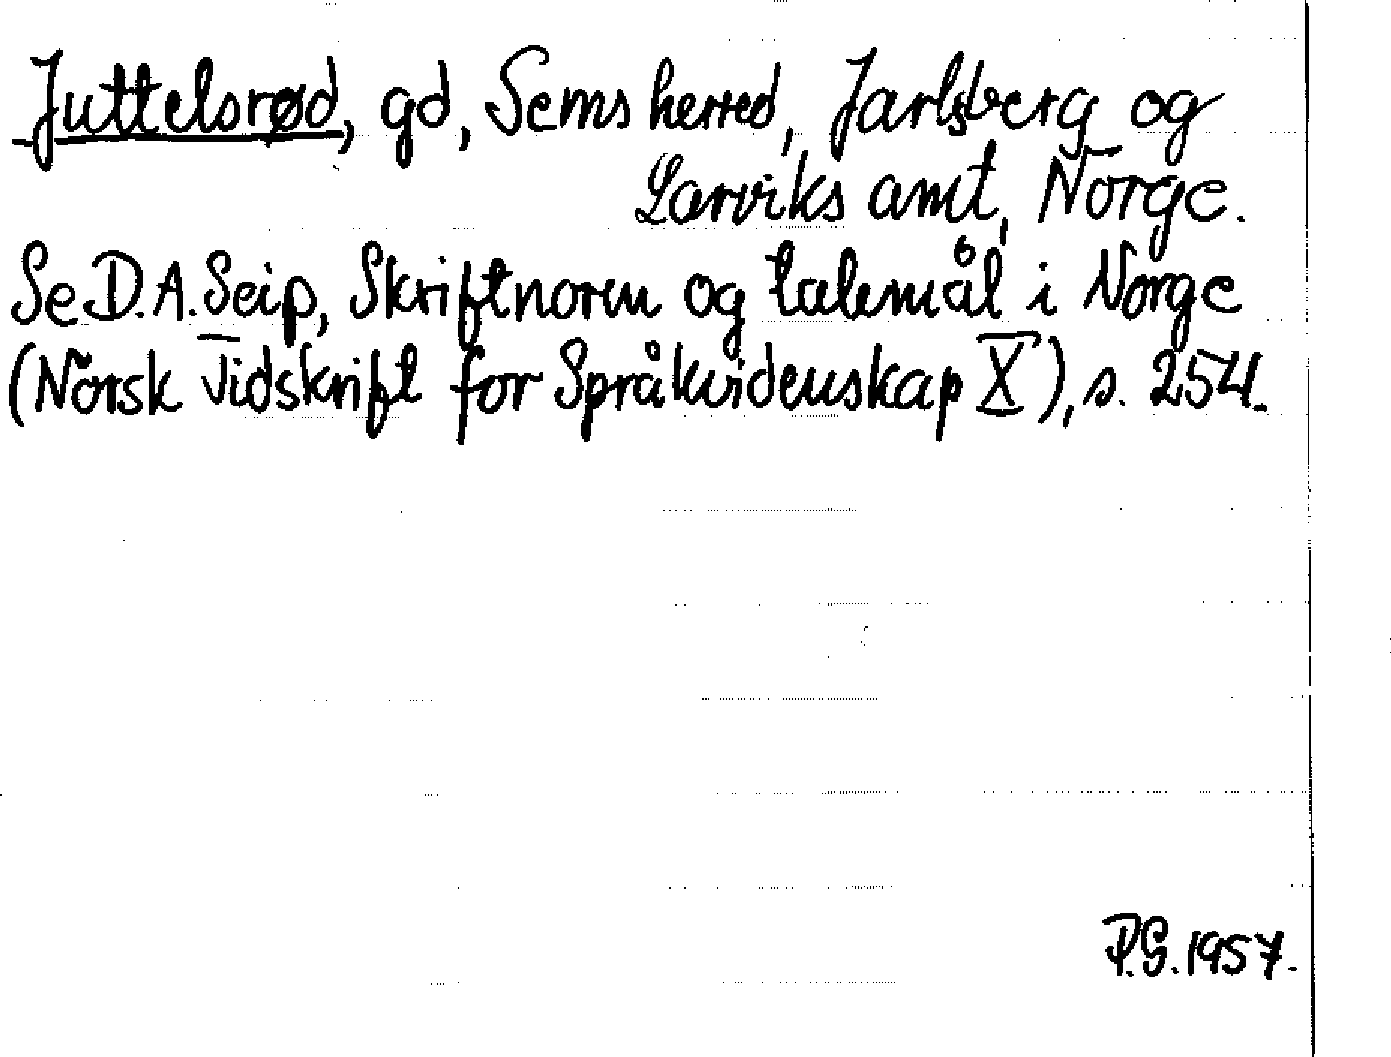 Juttelsrød, gd, Sems herred, Jarlsberg og
Larviks amt, Norge.
Se D. A. Seip, Skriftnorm og talemål i Norge
(Norsk Tidskrift for Språkvidenskap X), s. 254.
P.G. 1957.